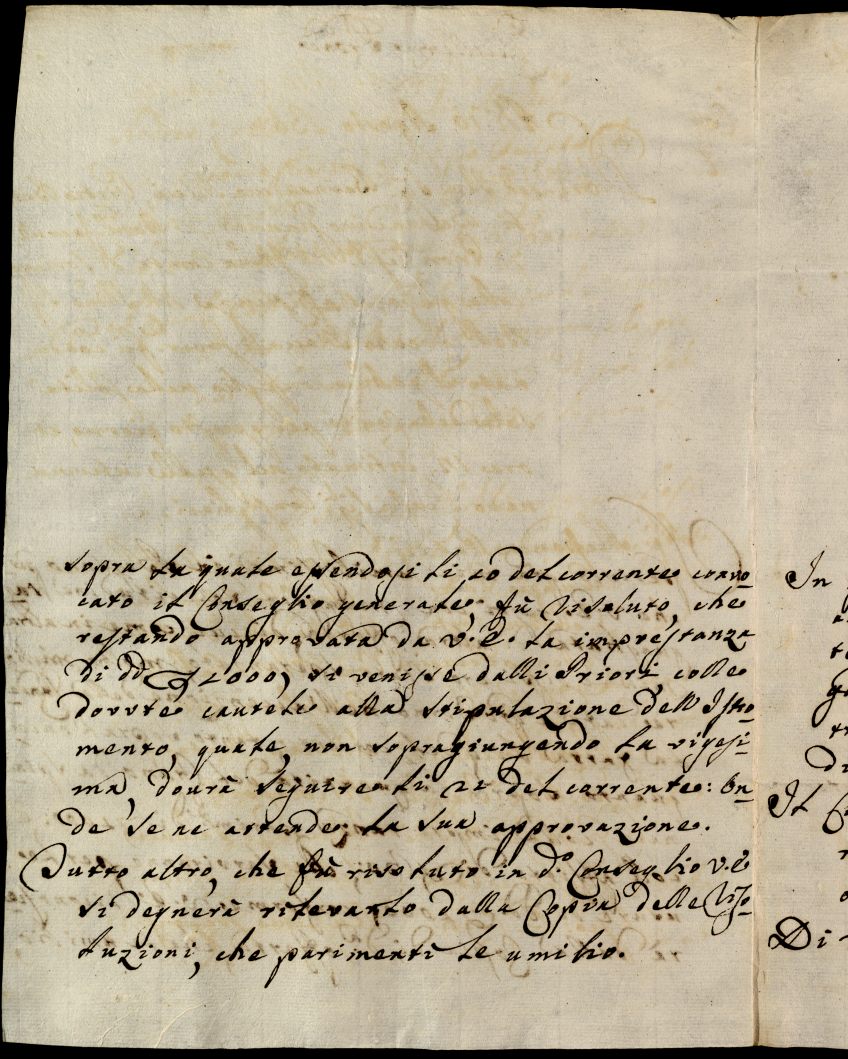 sopra la quale essendosi li 20 del corrente convo-
cato il Conseglio generale, fù risoluto, che
restando approvata da V.E. la imprestanza
di dd 1000, si venisse dalli Priori, colle
dovute cautele alla stipulazione dell'Istro-
mento, quale, non sopragiungendo la vigesi-
ma, dourà seguire li 22 del corrente: On-
de se ne attende, la sua approvazione.
Tutto altro, che fù risoluto in d.º Conseglio V.E.
si degnerà rilevarlo dalla Copia delle Riso-
luzioni, che parimenti le umilio.
In
It
Di